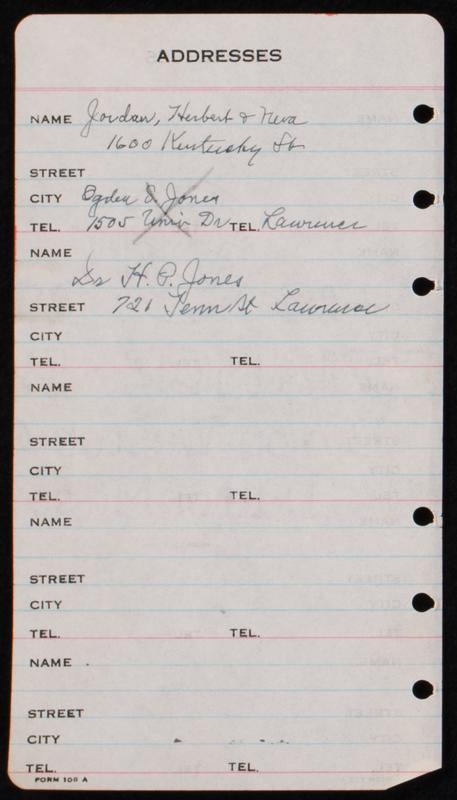 ADDRESSES
NAME Jordan, Herbert & Neva
1600 Kentucky St
STREET
CITY Ogden S. Jones
TEL. 1505 Univ Dr TEL. Lawrence
NAME
Dr H. P. Jones
STREET 721 Tenn St Lawrence
CITY
TEL. TEL.
NAME
STREET
CITY
TEL. TEL.
NAME
STREET
CITY
TEL. TEL.
NAME
STREET
CITY
TEL. TEL.
FORM 106 A